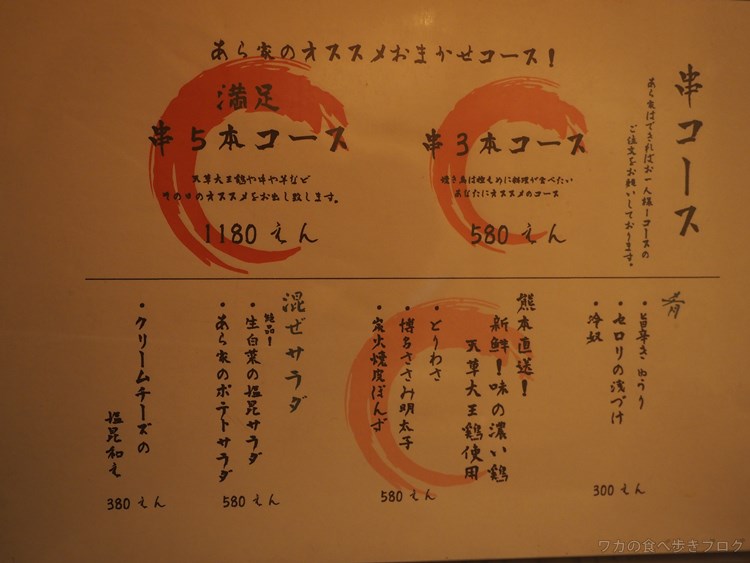 串コース
あら家はできればお一人様1コースの
ご注文をお願いしております。
あら家のオススメおまかせコース!
串3本コース
焼き鳥は控えめに料理が食べたい
あなたにオススメのコース
580えん
満足
串5本コース
天草大王鶏や牛や羊など
その日のオススメをお出し致します。
1180えん
肴
・旨辛きゅうり
・セロリの浅づけ
・冷奴
300えん
熊本直送!
新鮮!味の濃い鶏
天草大王鶏使用
・とりわさ
・博多ささみ明太子
・炭火焼皮ぽんず
580えん
混ぜサラダ
絶品!
・生白菜の塩昆サラダ
・あら家のポテトサラダ
580えん
・クリームチーズの
塩昆和え
380えん
ワカの食べ歩きブログ